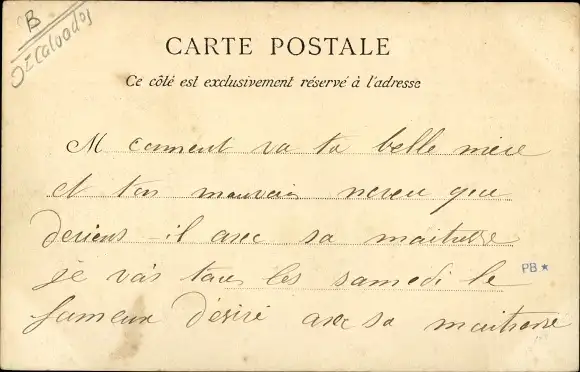 B
Calvados
CARTE POSTALE
Ce côté est exclusivement réservé à l'adresse
M comment va ta belle mère
et ton mauvais neveu que
deviens-il avec sa maitresse
je vais tous les samedi le
PB★
fameux Désiré avec sa maitresse